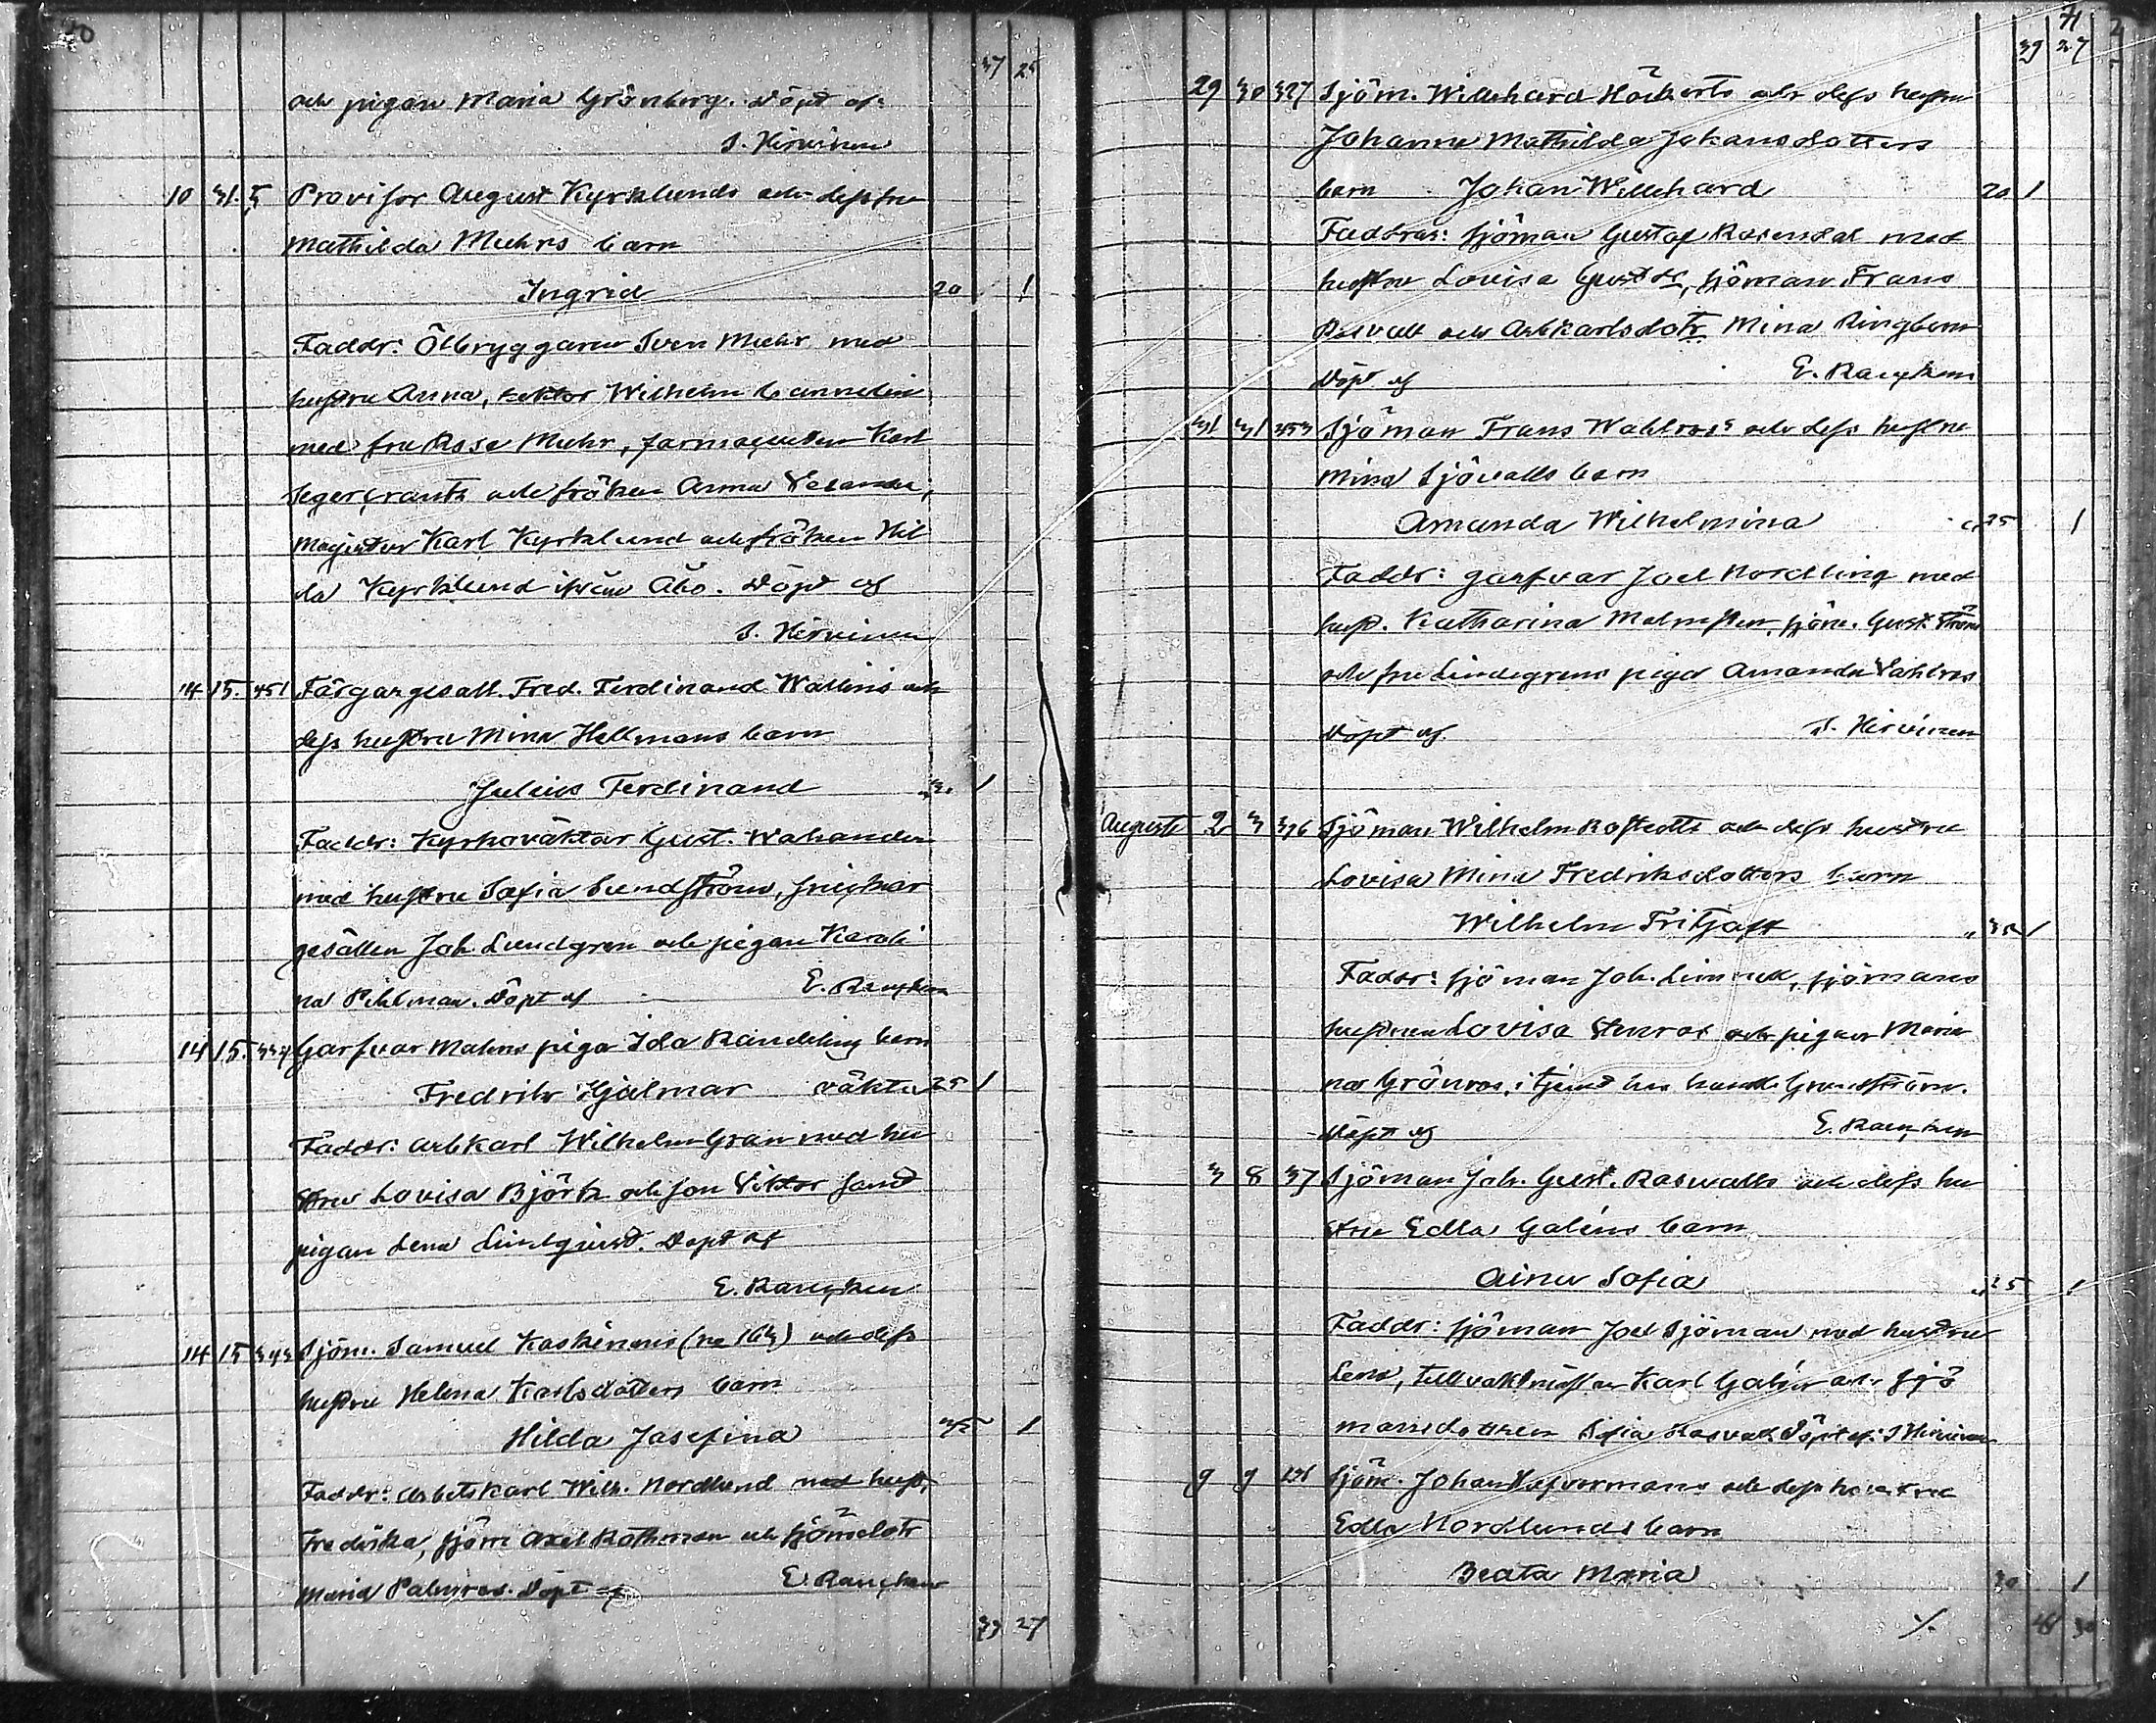 70
37 25
och pigan Maria Grönberg. Döpt af:
S. Hirvinen
10 31. 5 Provisor August Kyrklunds och dess fru
Mathilda Muhrs barn
Ingrid 20 1
Faddr: Ölbryggaren Sven Muhr med
hustru Anna, rektor Wilhelm Cannelin
med fru Muhr, farmaceuten Karl
Segercrantz och fröken Anna
Magister Karl Kyrklund och fröken Hil
da Kyrklund ifrån Åbo. Döpt af
S. Hirvinen
14 15. 451 Färgargesäll. Fred. Ferdinand Wallins och
dess hustru Mina Hellmans barn
Julius Ferdinand 1
Faddr: Kyrkoväktar Gust. Wahander
med hustru Sofia Sundström, snickar
gesällen Joh. Lundgren och pigan Karoli
na Pihlman. Döpt af E. Rancken
14 15. 334 Garfvar Malms piga Ida Randelin barn
Fredrik Hjalmar oäkta 25 1
Faddr: arbkarl Wilhelm Gran med hu
stru Lovisa Björk och son Viktor samt
pigan Lena Lindqvist. Döpt af
E. Rancken
14 15 343 Sjöm. Samuel Koskinens (no 163) och dess
hustru Helena Karlsdotters barn
Hilda Josefina 35 1
Faddr: Arbetskarl Wilh. Nordlund med hust.
Fredrika, sjöm Axel Rothman och sjömsdotr
Maria Palmros. Döpt af E. Rancken
39 27
71
39 27
29 30 327 Sjöm. Willehard Höckerts och dess hustru
Johanna Mathilda Johansdotters
barn Johan Willehard 20 1
Faddrar: sjöman Gustaf Rosendal med
hustru Lovisa Gustdr, sjöman Frans
Rosvall och Arbkarlsdotr Mina Ringbom
Döpt af E. Rancken
31 31 353 Sjöman Frans Wahlroos och dess hustru
Mina Sjövalls barn
Amanda Wilhelmina 25 1
Faddr: garfvar Joel Nordling med
hust. Katharina Malmsten, sjöm. Gust. Ström
och fru Lindegrens piga Amanda Vahlros
Döpt af S. Hirvinen
Augusti 2 3 376 Sjöman Wilhelm Rostedts och dess hustru
Lovisa Mina Fredriksdotters barn
Wilhelm Fritjoff 1
Faddr: sjöman Joh. sjömans
hustrun Lovisa Stenros och pigan Maria
na Grönros, i tjenst hos handl. Grandström.
Döpt af E. Rancken
3 8 37 Sjöman Joh. Gust. Rosvalls och dess hu
stru Edla Galéns barn
Aina Sofia 25 1
Faddr: sjöman Joel Sjöman med hustru
Lena, tullvaktmästar Karl Galén och sjö
mansdottren Sofia Rosvall. Döpt af: S Hirvinen
9 9 Sjöm. Johan och dess hustru
Edla Nordlunds barn
Beata Maria 30 1
./. 41 30